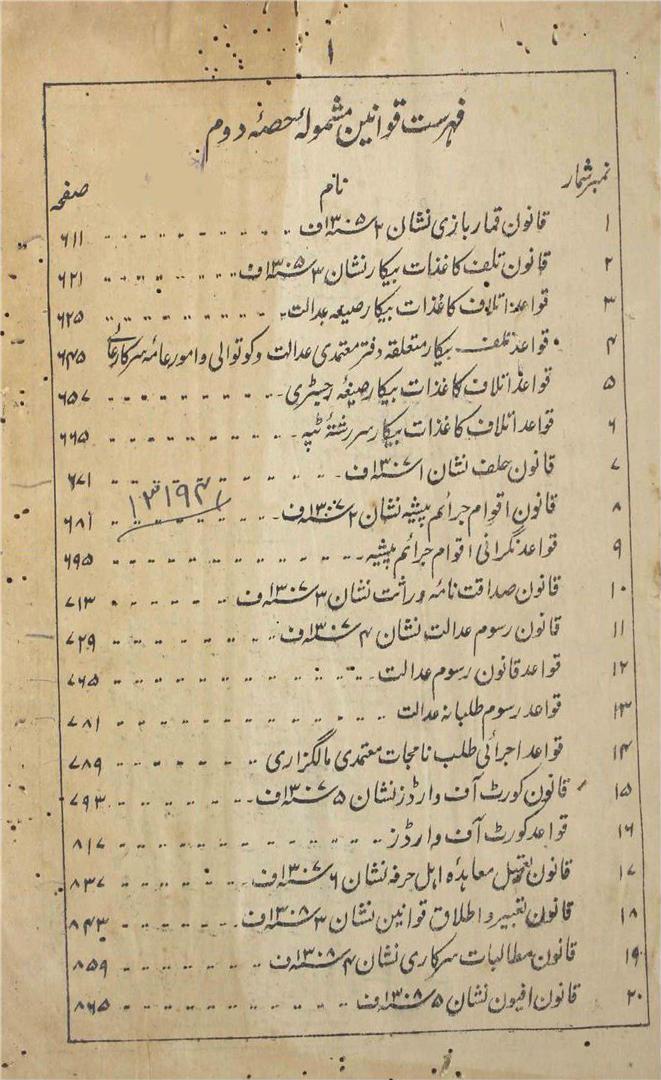 ۱
فہرست قوانین مشمولۂ حصۂ دوم
نمبر شمار نام صفحہ
۱ قانون قمار بازی نشان ۲ ۱۳۰۵ سنہ ف ۶۱۱
۲ قانون تلف کاغذات بیکار نشان ۳ ۱۳۰۵ سنہ ف ۶۲۱
۳ قواعد اتلاف کاغذات بیکار صیغہ عدالت ۶۲۵
۴ قواعد تلف بیکار متعلقہ دفتر معتمدی عدالت وکوتوالی وامور عامہ سرکار عالی ۶۴۵
۵ قواعد اتلاف کاغذات بیکار صیغۂ رجسٹری ۶۵۷
۶ قواعد اتلاف کاغذات بیکار سررشتۂ ٹپہ ۶۶۵
۷ قانون حلف نشان ۱ ۱۳۰۷ سنہ ف ۶۷۱
۱۳۱۹۴۱
۸ قانون اقوام جرائم پیشہ نشان ۲ ۱۳۰۷ سنہ ف ۶۸۱
۹ قواعد نگرانی اقوام جرائم پیشہ ۶۹۵
۱۰ قانون صداقت نامہ وراثت نشان ۳ ۱۳۰۷ سنہ ف ۷۱۳
۱۱ قانون رسوم عدالت نشان ۴ ۱۳۰۷ سنہ ف ۷۲۹
۱۲ قواعد قانون رسوم عدالت ۷۶۵
۱۳ قواعد رسوم طلبانہ عدالت ۷۸۱
۱۴ قواعد اجرائی طلب نامجات معتمدی مالگزاری ۷۸۹
۱۵ قانون کورٹ آف وارڈز نشان ۵ ۱۳۰۷ سنہ ف ۷۹۳
۱۶ قواعد کورٹ آف وارڈز ۸۱۷
۱۷ قانون تعمیل معاہدہ اہل حرفہ نشان ۶ ۱۳۰۷ سنہ ف ۸۳۷
۱۸ قانون تعبیر و اطلاق قوانین نشان ۳ ۱۳۰۸ سنہ ف ۸۴۳
۱۹ قانون مطالبات سرکاری نشان ۴ ۱۳۰۸ سنہ ف ۸۵۹
۲۰ قانون افیون نشان ۵ ۱۳۰۸ سنہ ف ۸۶۵